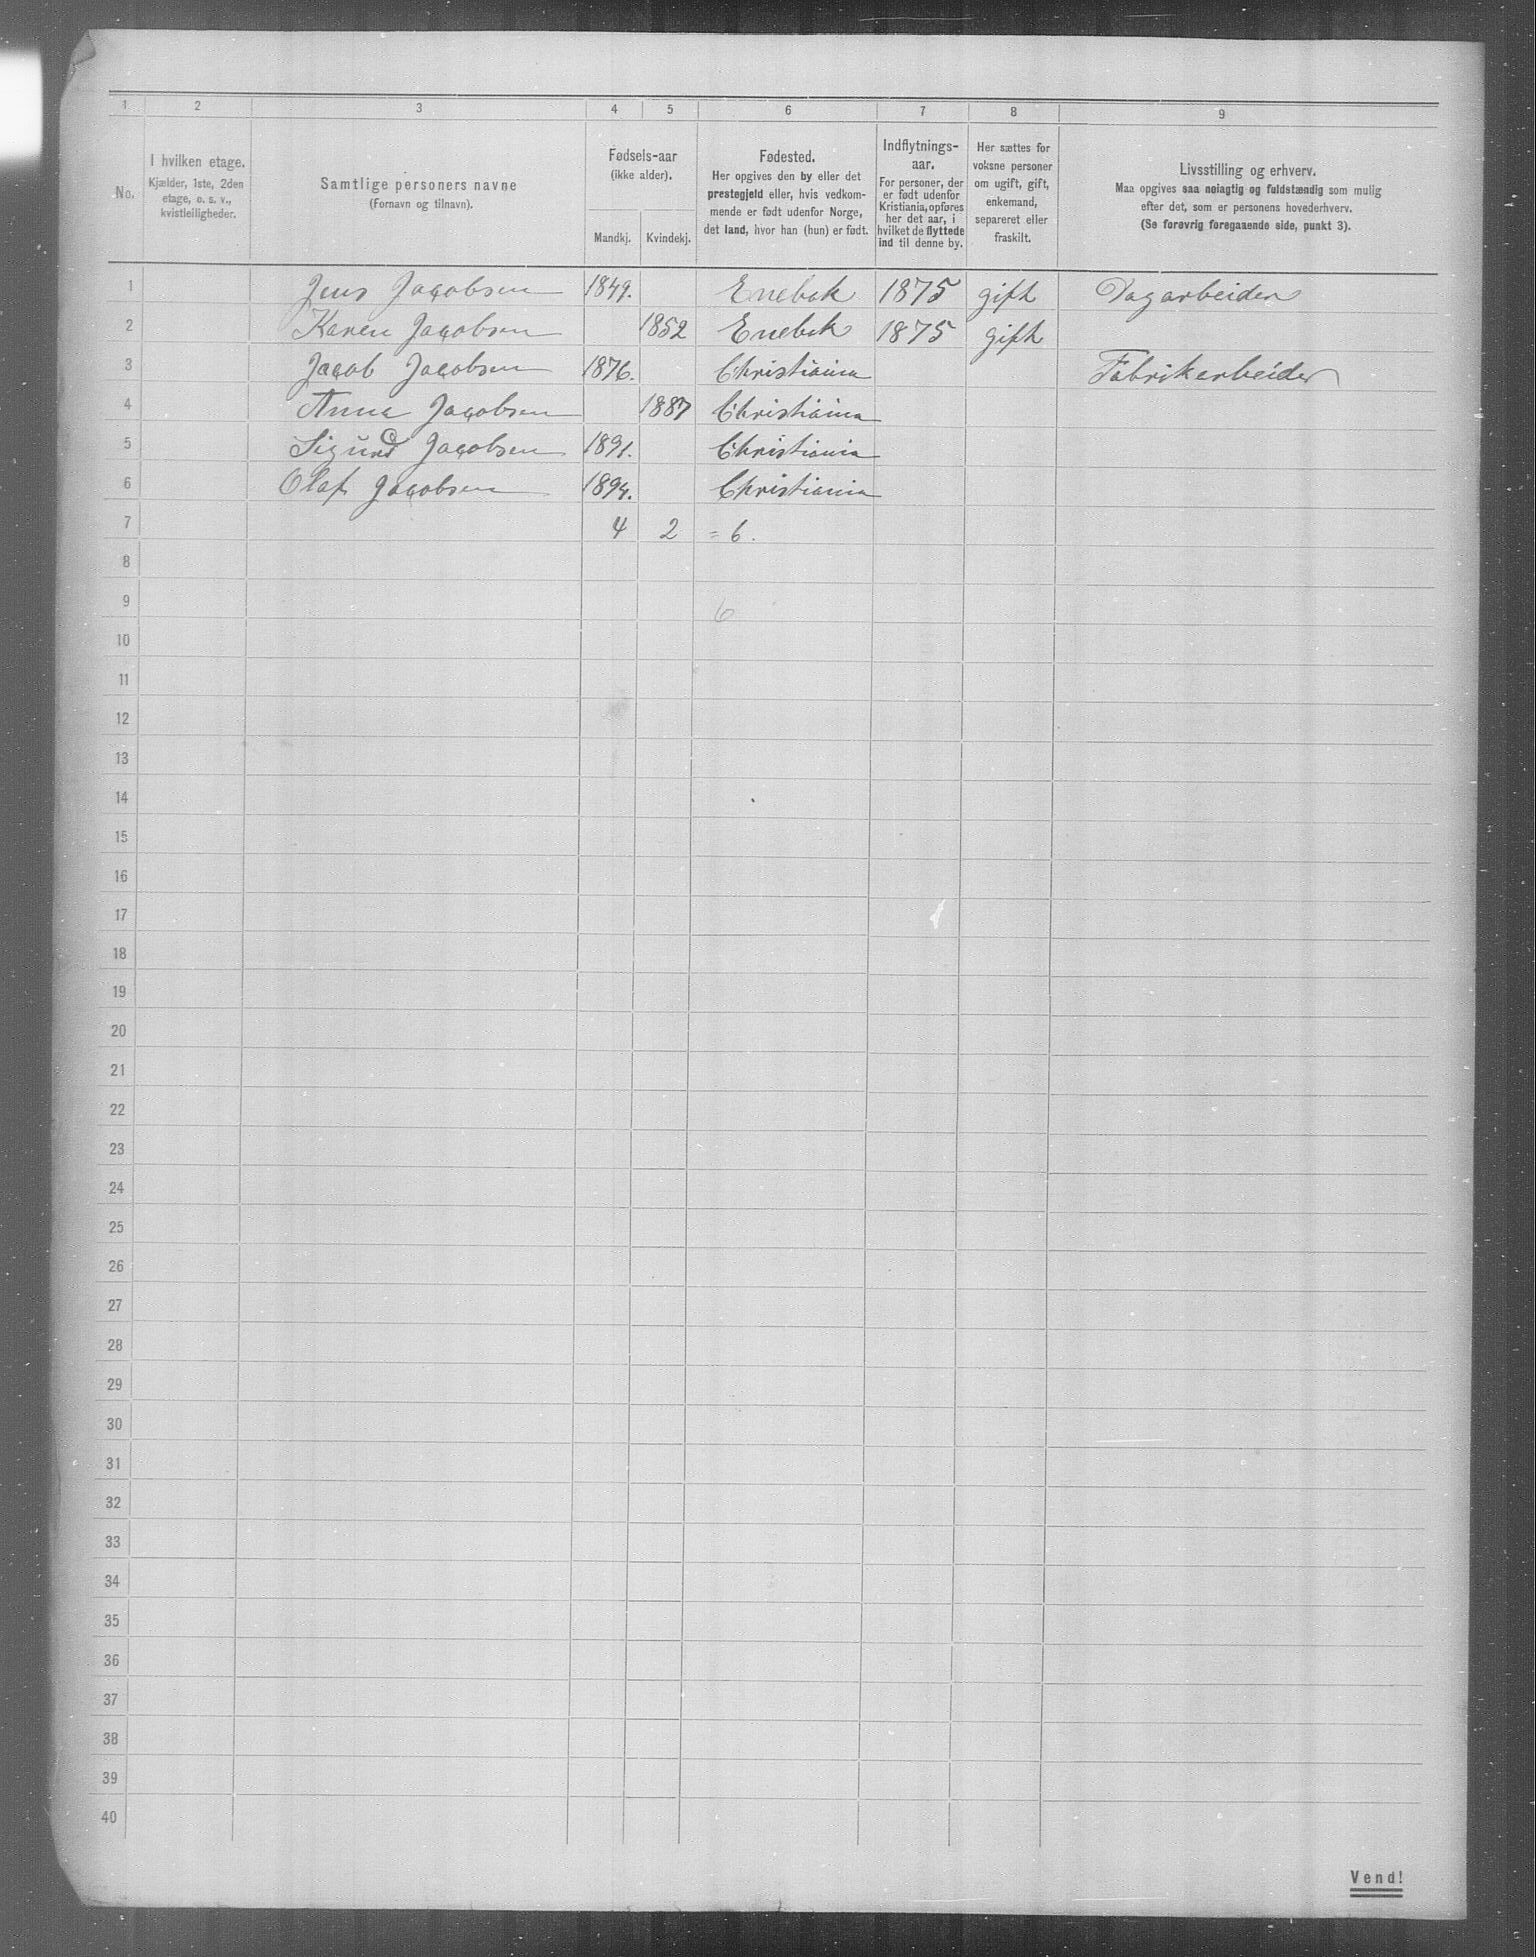 1 2 3 4 5 6 7 8 9
No.
I hvilken etage.
Kjælder, 1ste, 2den
etage, o. s. v.,
kvistleiligheder.
Samtlige personers navne
(Fornavn og tilnavn).
Fødsels-aar
(ikke alder).
Mandkj. Kvindekj.
Fødested.
Her opgives den by eller det
prestegjeld eller, hvis vedkom-
mende er født udenfor Norge,
det land, hvor han (hun) er født.
Indflytnings-
aar.
For personer, der
er født udenfor
Kristiania, opføres
her det aar, i
hvilket de flyttede
ind til denne by.
Her sættes for
voksne personer
om ugift, gift,
enkemand,
separeret eller
fraskilt.
Livsstilling og erhverv.
Maa opgives saa nøiagtig og fuldstændig som mulig
efter det, som er personens hovederhverv.
(Se forøvrig foregaaende side, punkt 3).
1 Jens Jacobsen 1849. Enebak 1875 gift Dagarbeider
2 Karen Jacobsen 1852 Enebak 1875 gift
3 Jacob Jacobsen 1876. Christiania Fabrikarbeider
4 Anna Jacobsen 1887 Christiania
5 Sigurd Jacobsen 1891. Christiania
6 Olaf Jacobsen 1894. Christiania
7 4 2 = 6.
8
9 6
10
11
12
13
14
15
16
17
18
19
20
21
22
23
24
25
26
27
28
29
30
31
32
33
34
35
36
37
38
39
40
Vend!